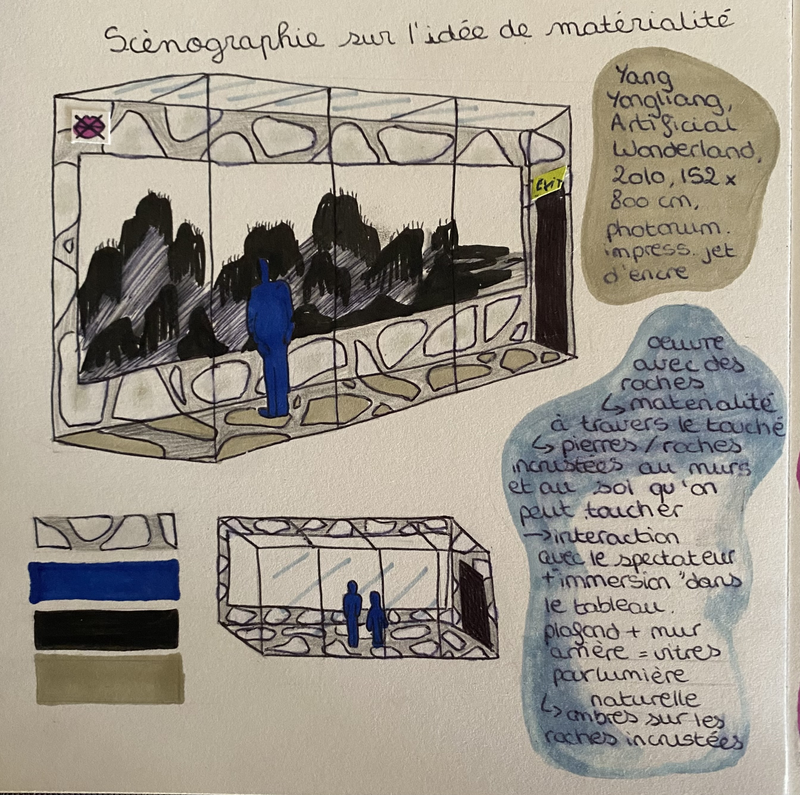 Scènographie sur l'idée de matérialité
Yang
Yongliang,
Artificial
Wonderland,
2010, 152 x
800 cm,
photonum.
impress. jet
d'encre
Exit
œuvre
avec des
roches
↳ matérialité
à travers le touché
↳ pierres / roches
incrustées au murs
et au sol qu'on
peut toucher
→ interaction
avec le spectateur
+ "immersion" dans
le tableau.
plafond + mur
arrière = vitres
pour lumière
naturelle
↳ ombres sur les
roches incrustées